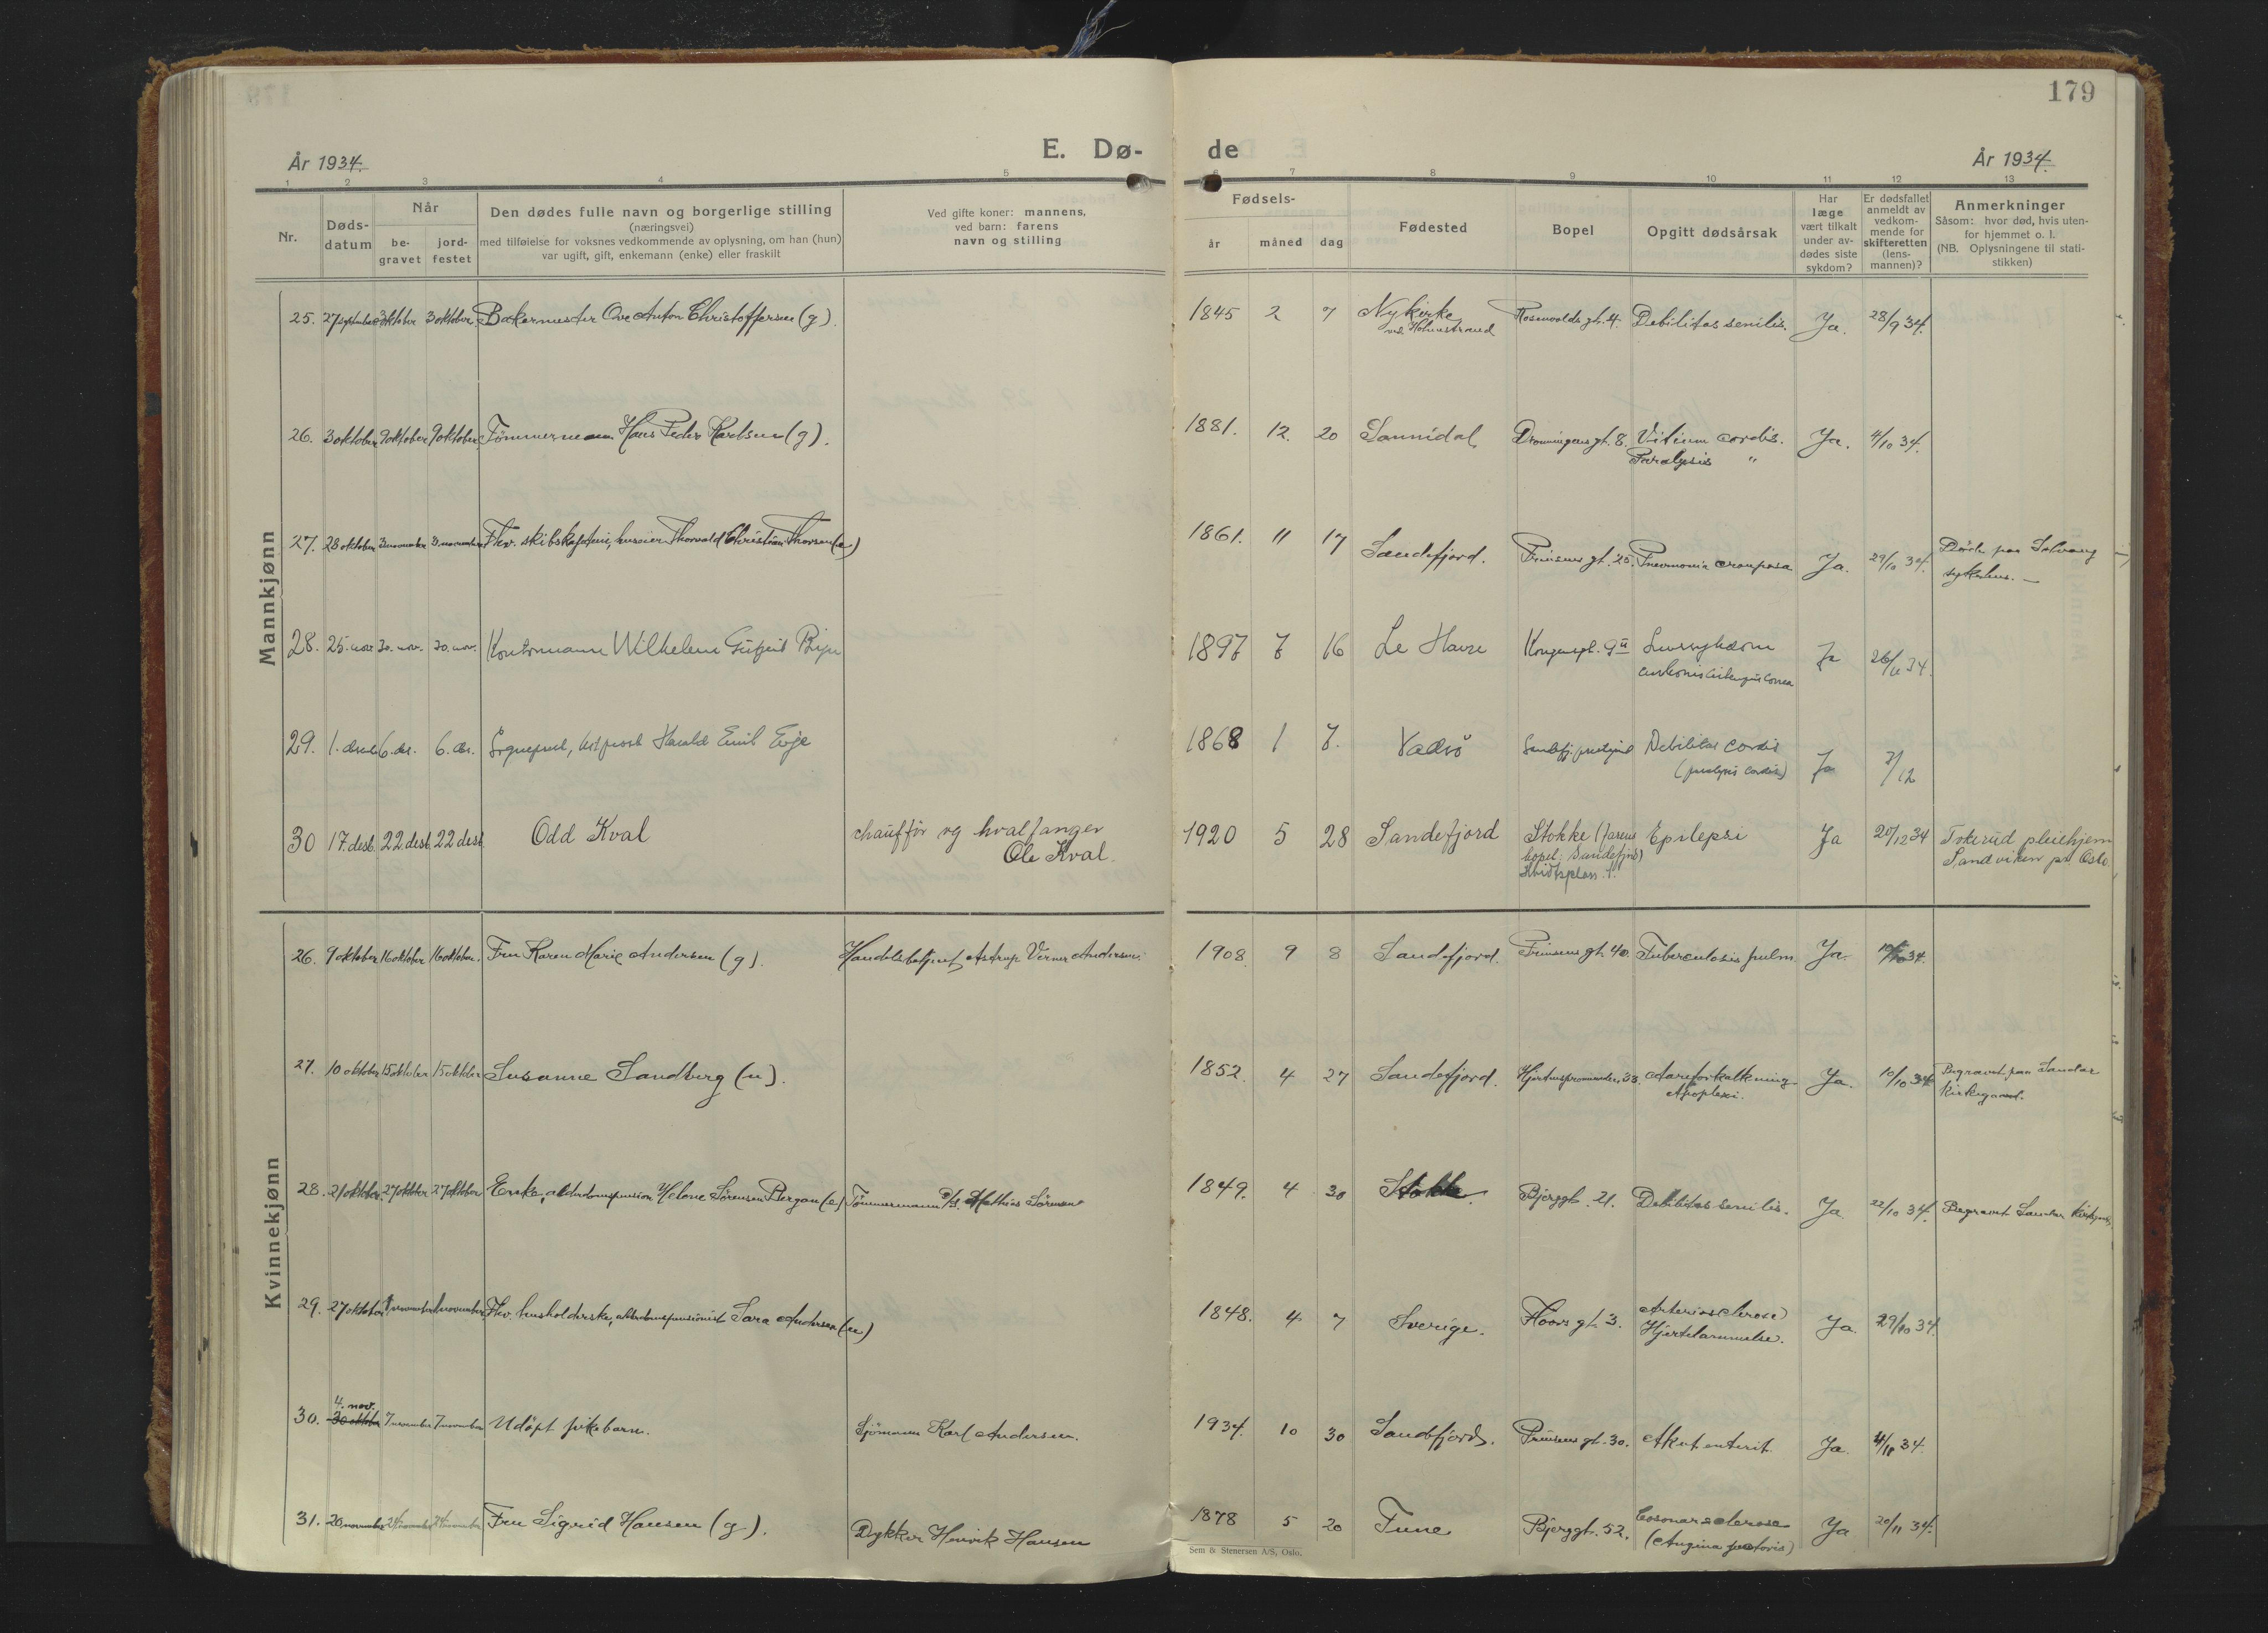 179
År 1934.
E. Dø-
de
År 1934.
1 2 3 4 5 6 7 8 9 10 11 12 13
Nr.
Døds-
datum
Når
be-
gravet
jord-
festet
Den dødes fulle navn og borgerlige stilling
(næringsvei)
med tilføielse for voksnes vedkommende av oplysning, om han (hun)
var ugift, gift, enkemann (enke) eller fraskilt
Ved gifte koner: mannens,
ved barn: farens
navn og stilling
Fødsels-
år måned dag
Fødested
Bopel
Opgitt dødsårsak
Har
læge
vært tilkalt
under av-
dødes siste
sykdom?
Er dødsfallet
anmeldt av
vedkom-
mende for
skifteretten
(lens-
mannen)?
Anmerkninger
Såsom: hvor død, hvis uten-
for hjemmet o. l.
(NB. Oplysningene til stati-
stikken)
Mannkjønn
25. 27 september 3 oktober 3 oktober Bakermester Ove Anton Christoffersen (g). 1845 2 7 Nykirke Rosenvolds gt. 4. Debilitas senilis. Ja. 28/9 34.
ved Holmestrand
26. 3 oktober 9 oktober 9 oktober Tömmermann Hans Peder Karlsen (g). 1881. 12. 20 Sannidal Dronningens gt. 8. Vitium cordis. Ja. 4/10 34.
Paralysis "
27. 28 oktober 3 november 3. november Fhv. skibskaptein, huseier Thorvald Christian Thorsen (e) 1861. 11 17 Sandefjord. Prinsens gt. 25. Pneumonia crouposa Ja. 29/10 34. Döde paa Solvang
sykehus. —
28. 25. nov. 30. nov. 30. nov. Kontormann Wilhelm 1897 7 16 Le Havre 9 Ja 26/11 34.
29. 1. 6. des. 6. des. Harald Emil Evje 1868 1 7. Vadsö Debilitas cordis Ja 3/12
(paralysis cordis)
30 17. des. 22 des. 22 des. Odd Kval chaufför og hvalfanger 1920 5 28 Sandefjord Stokke (farens Epilepsi Ja 20/12 34 Tokerud pleiehjem
Ole Kval. bopel: Sandefjord) Sandviken pr. Oslo.
Kvinnekjønn
26. 9 oktober 16 oktober 16 oktober. Fru Karen Marie Andersen (g). Handelsbetjent Astrup Verner Andersen. 1908. 9 8 Sandefjord. Prinsens gt. 40. Tuberculosis pulm. Ja. 10/10 34.
27. 10 oktober 15 oktober 15 oktober Susanne Sandberg (u). 1852. 4 27 Sandefjord. Hjertnespromenaden 33. Aareforkalkning. Ja. 10/10 34 Begravet paa Sandar
Apoplexi. Kirkegaard.
28. 21 oktober. 27 oktober 27 oktober Enke, alderdomspension Helene Sörensen Bergan (e) Tömmermann Mathias Sörensen 1849. 4 30 Stokke. Bjerggt. 21. Debilitas senilis. Ja. 22/10 34. Begravet Sandar kirkegaard.
29. 27 oktober 1 november 1 november Fhv. husholderske, alderdomspensionist Sara Andersen (u) 1848. 4 7 Sverige. Floors gt. 3. Arteriosclerose Ja. 29/10 34.
Hjertelammelse.
4. nov.
30. 30 oktober 7 november 7 november Udöpt pikebarn. Sjömann Karl Andersen. 1934. 10 30 Sandefjord. Prinsens gt. 30. Akut enterit. Ja. 34.
31. 20 november 24 november 24 november Fru Sigrid Hansen (g). Dykker Henrik Hansen 1878 5 20 Tune Bjerggt. 52. Coronarsclerose Ja 20/11 34.
(Angina pectoris)
Sem & Stenersen A/S, Oslo.